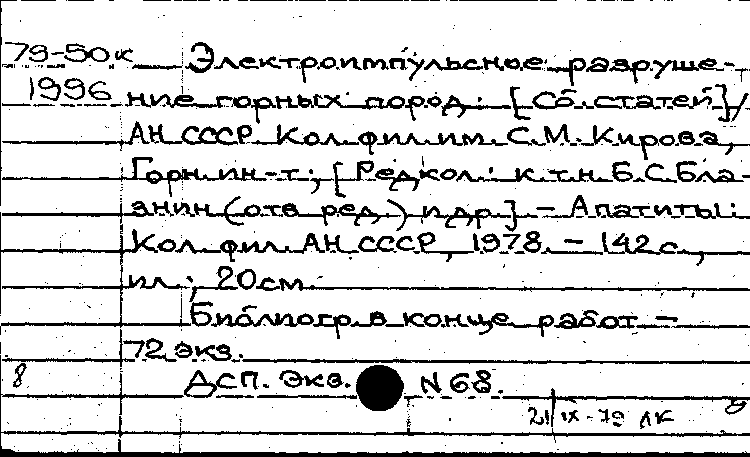 79-50к Электроимпульсное разруше-
1996 ние горных пород: [Сб. статей]/
АН СССР. Кол. фил. им. С.М. Кирова,
Горн. ин-т; [Редкол.: к.т.н. Б.С. Бла-
знин (отв ред.) и др.]. - Апатиты:
Кол. фил. АН СССР, 1978. - 142 с.,
ил.; 20см.
Библиогр. в конце работ -
72 экз.
8 ДСП. Экз. N 68.
21/IX-79 ЛК